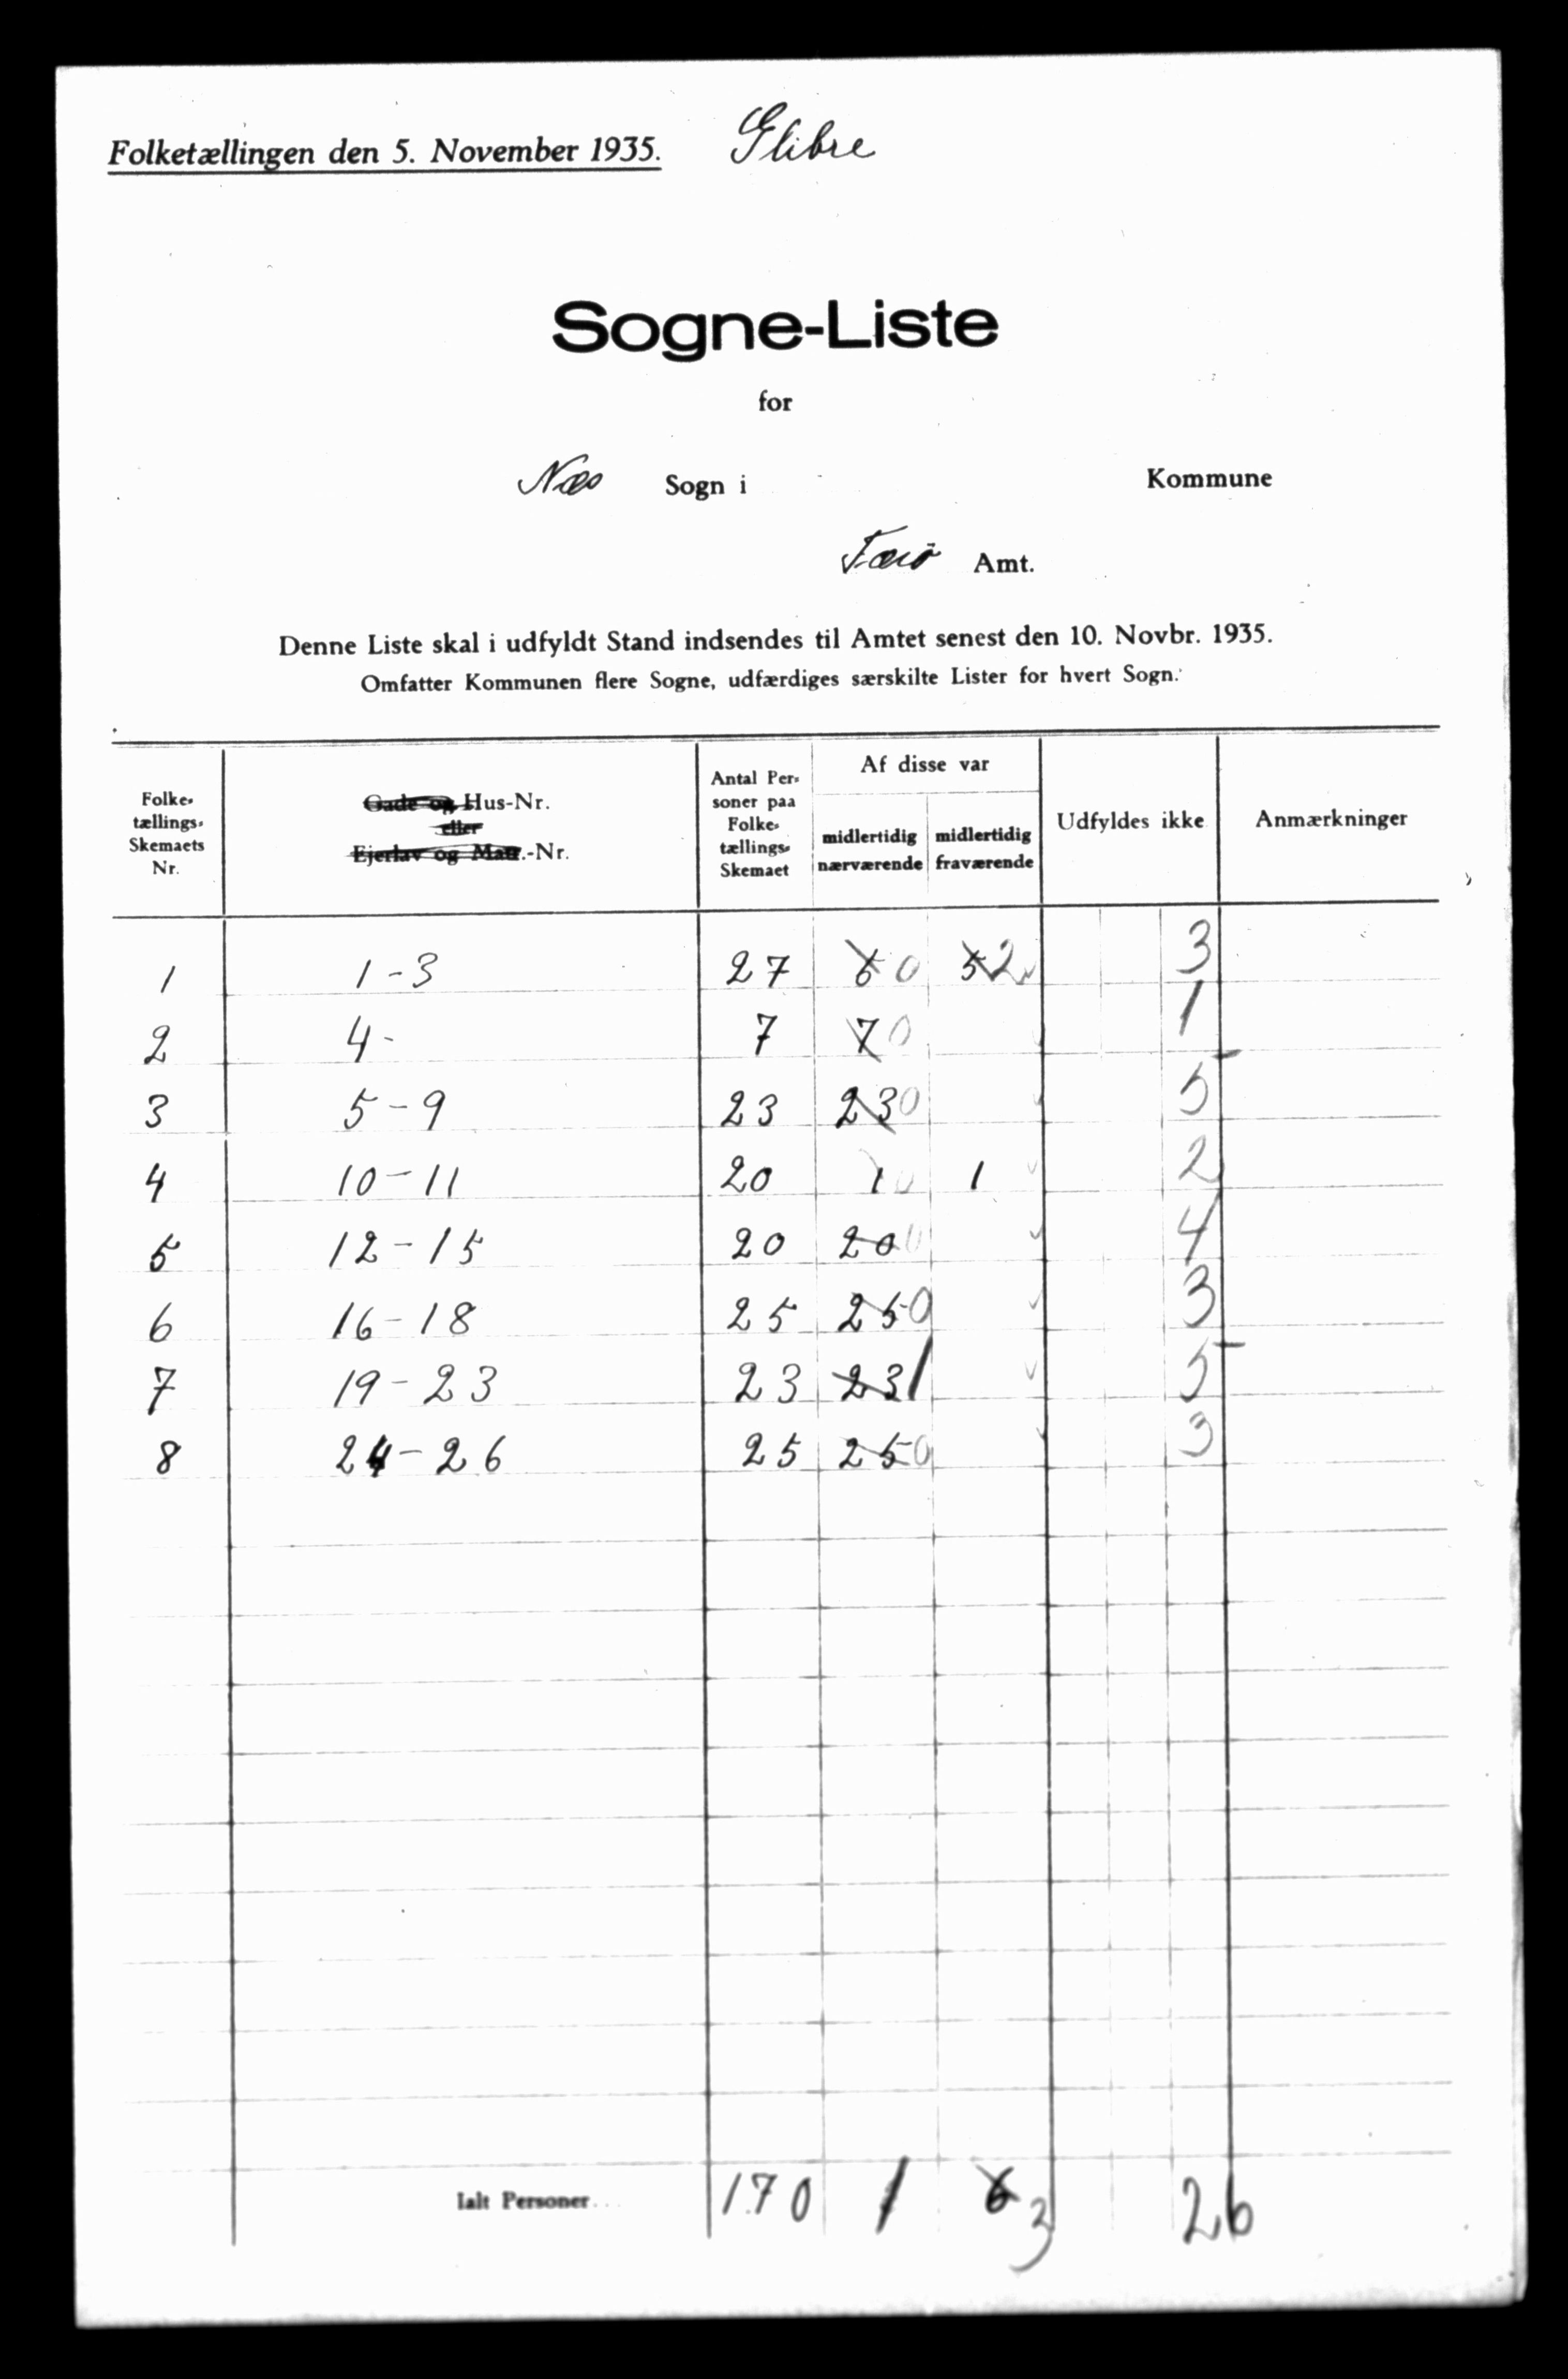 Folketællingen den 5. November 1935. Glibre
Sogne-Liste
for
Næs Sogn i Kommune
Færø Amt.
Denne Liste skal i udfyldt Stand indsendes til Amtet senest den 10. Novbr. 1935.
Omfatter Kommunen flere Sogne, udfærdiges særskilte Lister for hvert Sogn.
Folke-
tællings-
Skemaets
Nr.
Gade og Hus-Nr.
eller
Ejerlav og Matr.-Nr.
Antal Per-
soner paa
Folke-
tællings-
Skemaet
Af disse var
midlertidig
nærværende
midlertidig
fraværende
Udfyldes ikke
Anmærkninger
1 1-3 27 5 0 5 2 3
2 4- 7 7 0 1
3 5-9 23 23 0 5
4 10-11 20 1 0 1 2
5 12-15 20 20 0 4
6 16-18 25 25 0 3
7 19-23 23 23 1 5
8 24-26 25 25 0 3
Ialt Personer 170 1 6 3 26